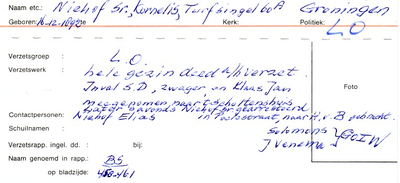 Naam etc.: Niehof Sr., Kornelis, Turfsingel 60A Groningen
Geboren: 16.12.1893 te Kerk: Politiek: LO
Verzetsgroep : L.O.
Verzetswerk : hele gezin deed a/h verzet.
Inval S.D., zwager, en Klaas Jan
meegenomen naar Scholtenshuis
Foto
later avonds Niehof Sr. gearresteerd
Contactpersonen: Niehof Elias in Poststraat, naar H.v.B gebracht.
Schuilnaam : Solomons
J Venema } GOIW
Verzetsrapp. ingel. dd. : bij:
Naam genoemd in rapp.: BS
op bladzijde: 458-461